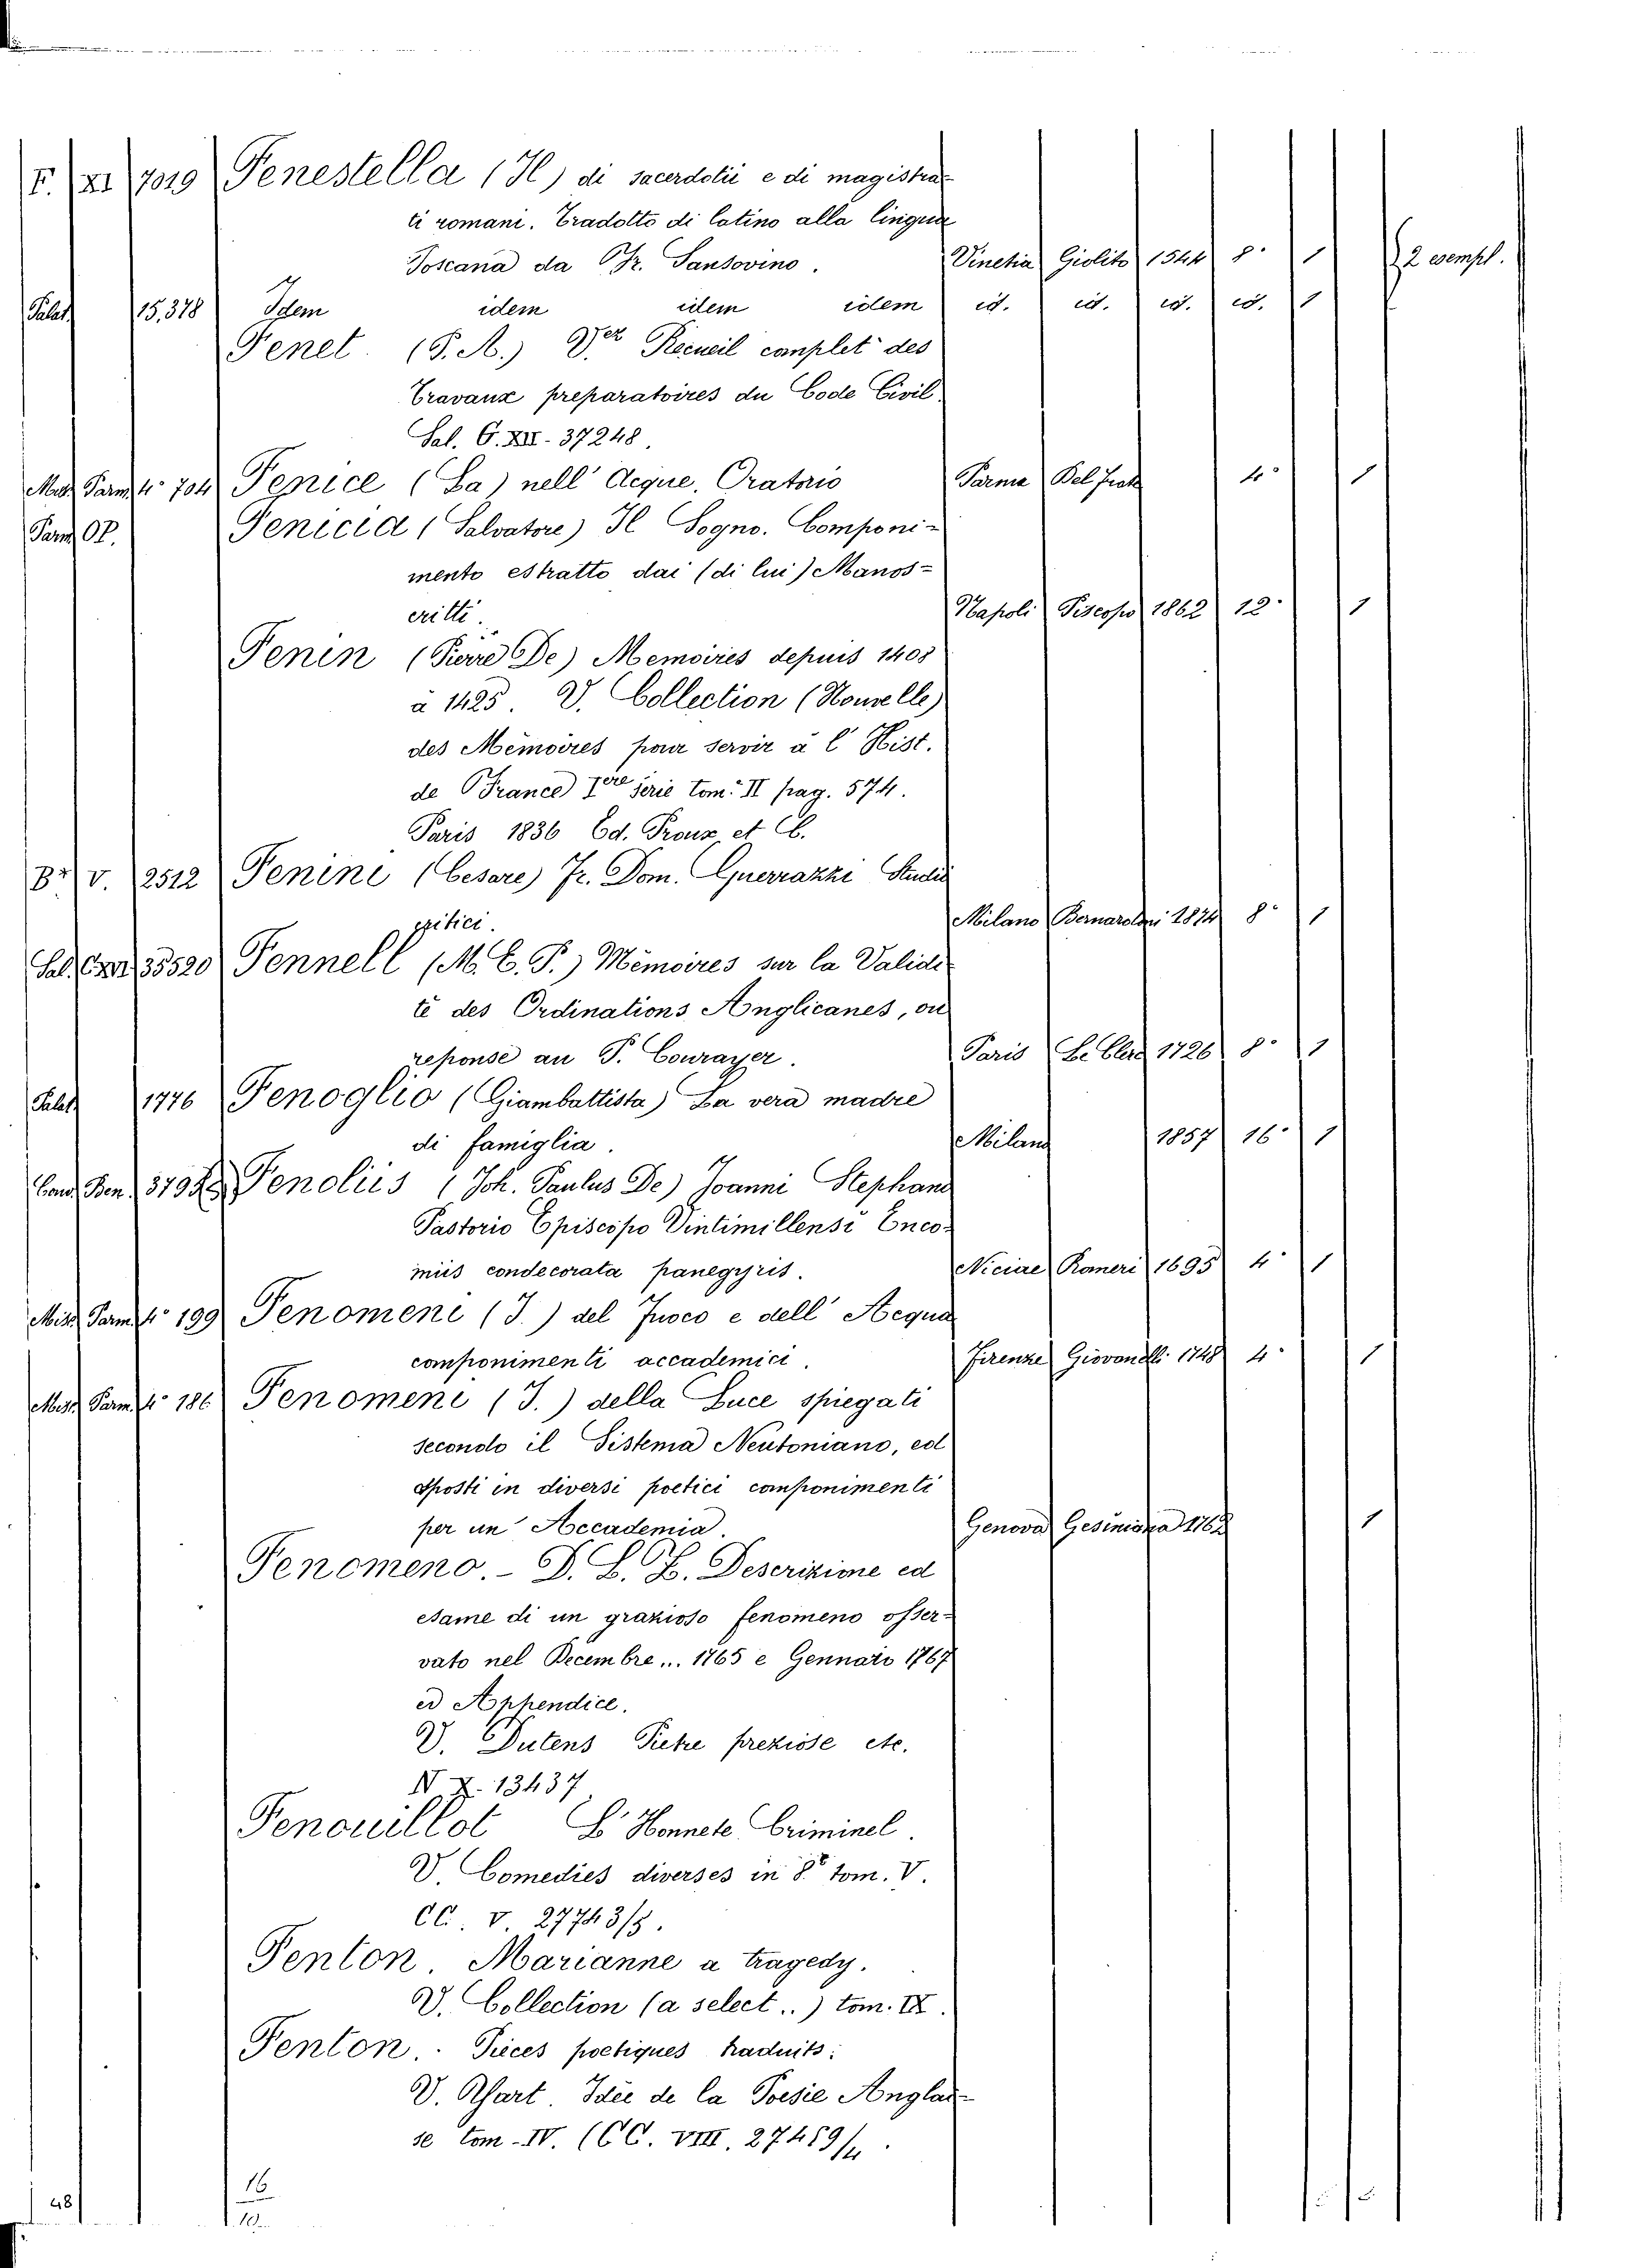 F. XI 7019 Fenestella (Il) di sacerdotii e di magistra-
ti romani. Tradotto di latino alla lingua
Toscana da Fr. Sansovino. Vinetia Giolito 1544 8° 1 2 esempl.
Palat. 15,378 Idem idem idem idem id. id. id. id. 1
Fenet. (P. A.) V. Recueil complet des
Travaux preparatoires du Code Civil.
Sal. G. XII. 37248.
Misc. Parm. 4° 704 Fenice (La) nell' Acque. Oratorio Parma Del Frate 4° 1
Parm. OP. Fenicia (Salvatore) Il Sogno. Componi-
mento estratto dai (di lui) Manos-
critti. Napoli Piscopo 1862 12° 1
Fenin (Pierre De) Memoires depuis 1408
à 1425. V. Collection (Nouvelle)
des Mémoires pour servir à l'Hist.
de France) Iere serie tom. II pag. 574.
Paris 1836 Ed. Proux et C.
B** V. 2512 Fenini (Cesare) Fr. Dom. Guerrazzi Studii
critici. Milano Bernardoni 1874 8° 1
Sal. 35520 Fennell (M. C. P.) Mémoires sur la Validi-
té des Ordinations Anglicanes, ou
reponse au P. Courayer. Paris Le Clerc 1726 8° 1
Palat. 1776 Fenoglio (Giambattista) La vera madre
di famiglia. Milano 1857 16° 1
Cond. Ben. Fenoliis (Joh. Paulus De) Joanni Stephano
Pastorio Episcopo Vintimillensi Enco-
miis condecorata panegyris. Niciae Romeri 1695 4° 1
Misc. Parm. 4° 199 Fenomeni (I.) del Fuoco e dell' Acqua
componimenti accademici. Firenze Giovanelli 1748 4° 1
Misc. Parm. 4° 186 Fenomeni (I.) della Luce spiegati
secondo il Sistema Neutoniano, ed
sposti in diversi poetici componimenti
per un' Accademia. Genova Gesiniana 1762 1
Fenomeno. - D. L. B. Descrizione ed
esame di un grazioso fenomeno osser-
vato nel Decembre... 1765 e Gennaio 1767
ed Appendice.
V. Dutens Pietre preziose etc.
N X. 13437
Fenouillot L'Honnete Criminel.
V. Comedies diverses in 8° tom. V.
CC. V. 27743/5.
Fenton. Marianne a tragedy.
V. Collection (a select..) tom. IX.
Fenton. Pièces poetiques traduits:
V. Yart. Idée de la Poesie Anglai-
se tom. IV. (CC. VIII. 27459/4.
16
10
48